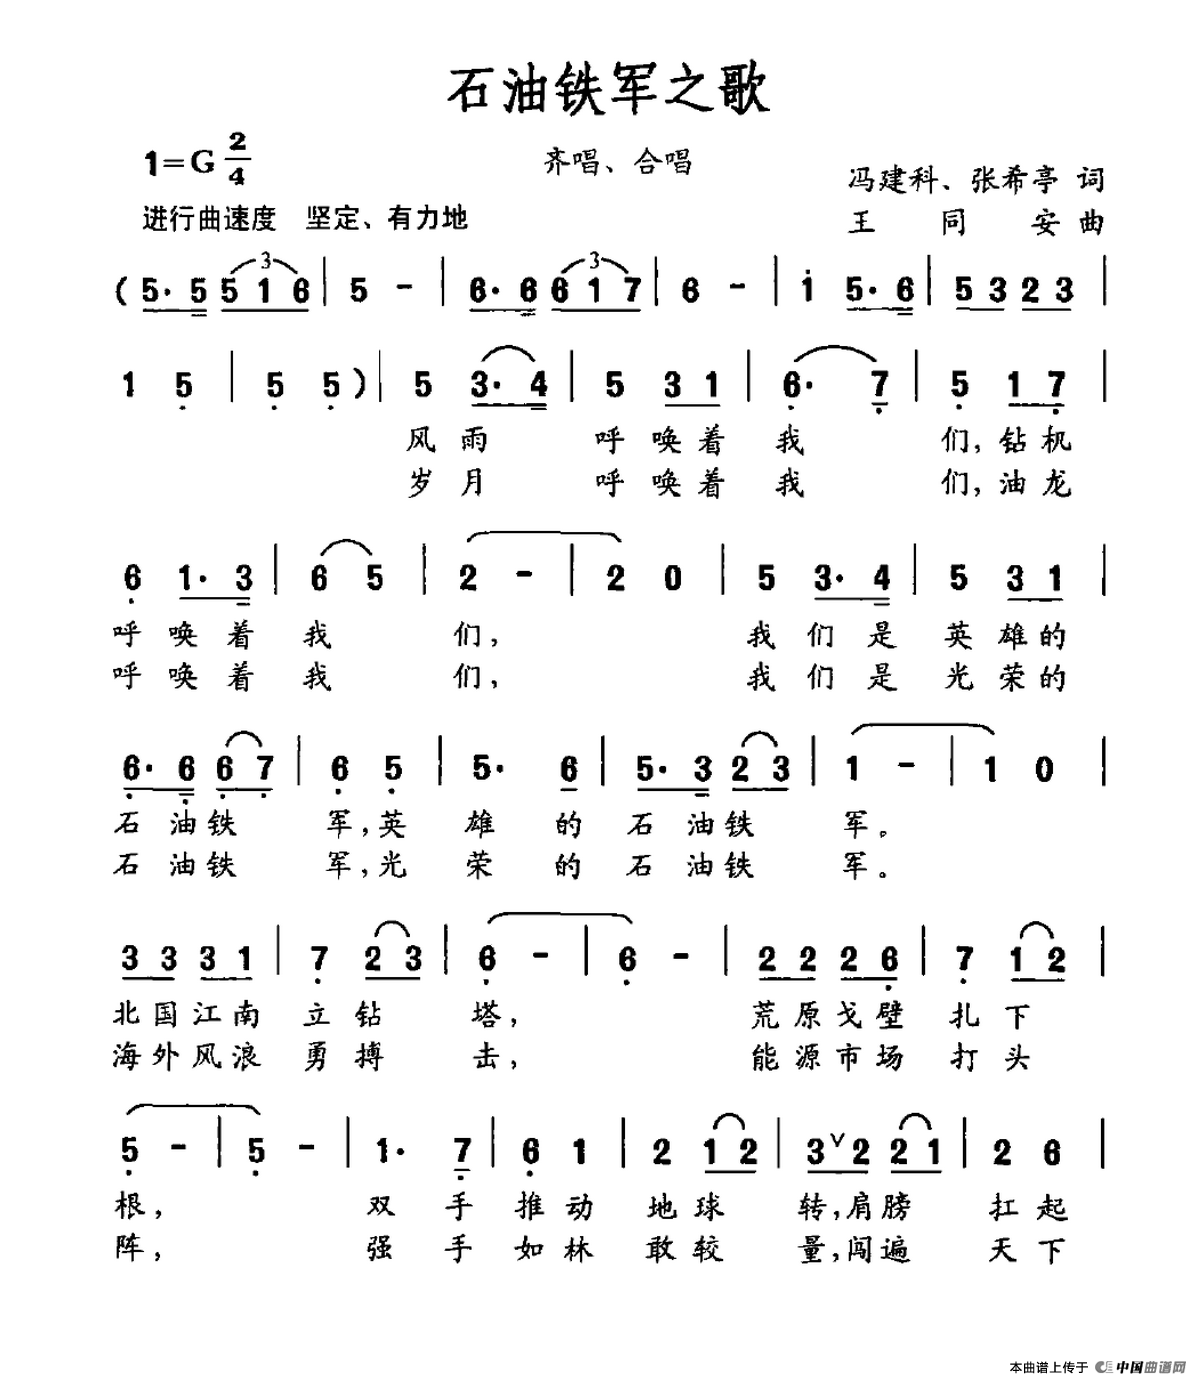 石油铁军之歌
1=G 2/4
齐唱、合唱
冯建科、张希亭 词
进行曲速度 坚定、有力地
王同安曲
( 5· 5 5 1 6 | 5 - | 6· 6 6 1 7 | 6 - | i 5· 6 | 5 3 2 3 |
3 3
1 5 | 5 5 ) | 5 3· 4 | 5 3 1 | 6· 7 | 5 1 7 |
风雨 呼唤着 我 们,钻机
岁月 呼唤着 我 们,油龙
6 1· 3 | 6 5 | 2 - | 2 0 | 5 3· 4 | 5 3 1 |
呼唤着 我 们, 我们是 英雄的
呼唤着 我 们, 我们是 光荣的
6· 6 6 7 | 6 5 | 5· 6 | 5· 3 2 3 | 1 - | 1 0 |
石油铁 军,英 雄的 石油铁 军。
石油铁 军,光 荣的 石油铁 军。
3 3 3 1 | 7 2 3 | 6 - | 6 - | 2 2 2 6 | 7 1 2 |
北国江南 立钻 塔, 荒原戈壁 扎下
海外风浪 勇搏 击, 能源市场 打头
5 - | 5 - | 1· 7 | 6 1 | 2 1 2 | 3 ∨ 2 2 1 | 2 6 |
根, 双手 推动 地球 转,肩膀 扛起
阵, 强手 如林 敢较 量,闯遍 天下
本曲谱上传于 中国曲谱网